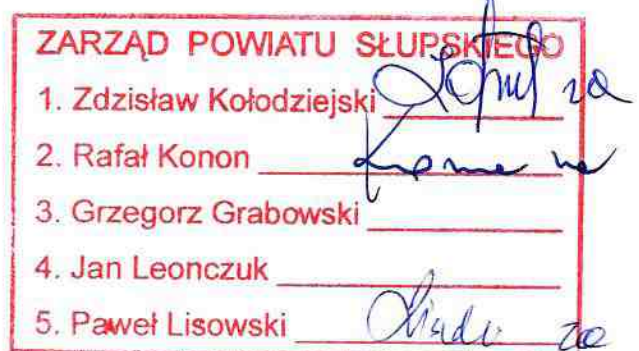 ZARZĄD POWIATU SŁUPSKIEGO
1. Zdzisław Kołodziejski za
2. Rafał Konon
3. Grzegorz Grabowski
4. Jan Leonczuk
5. Paweł Lisowski za